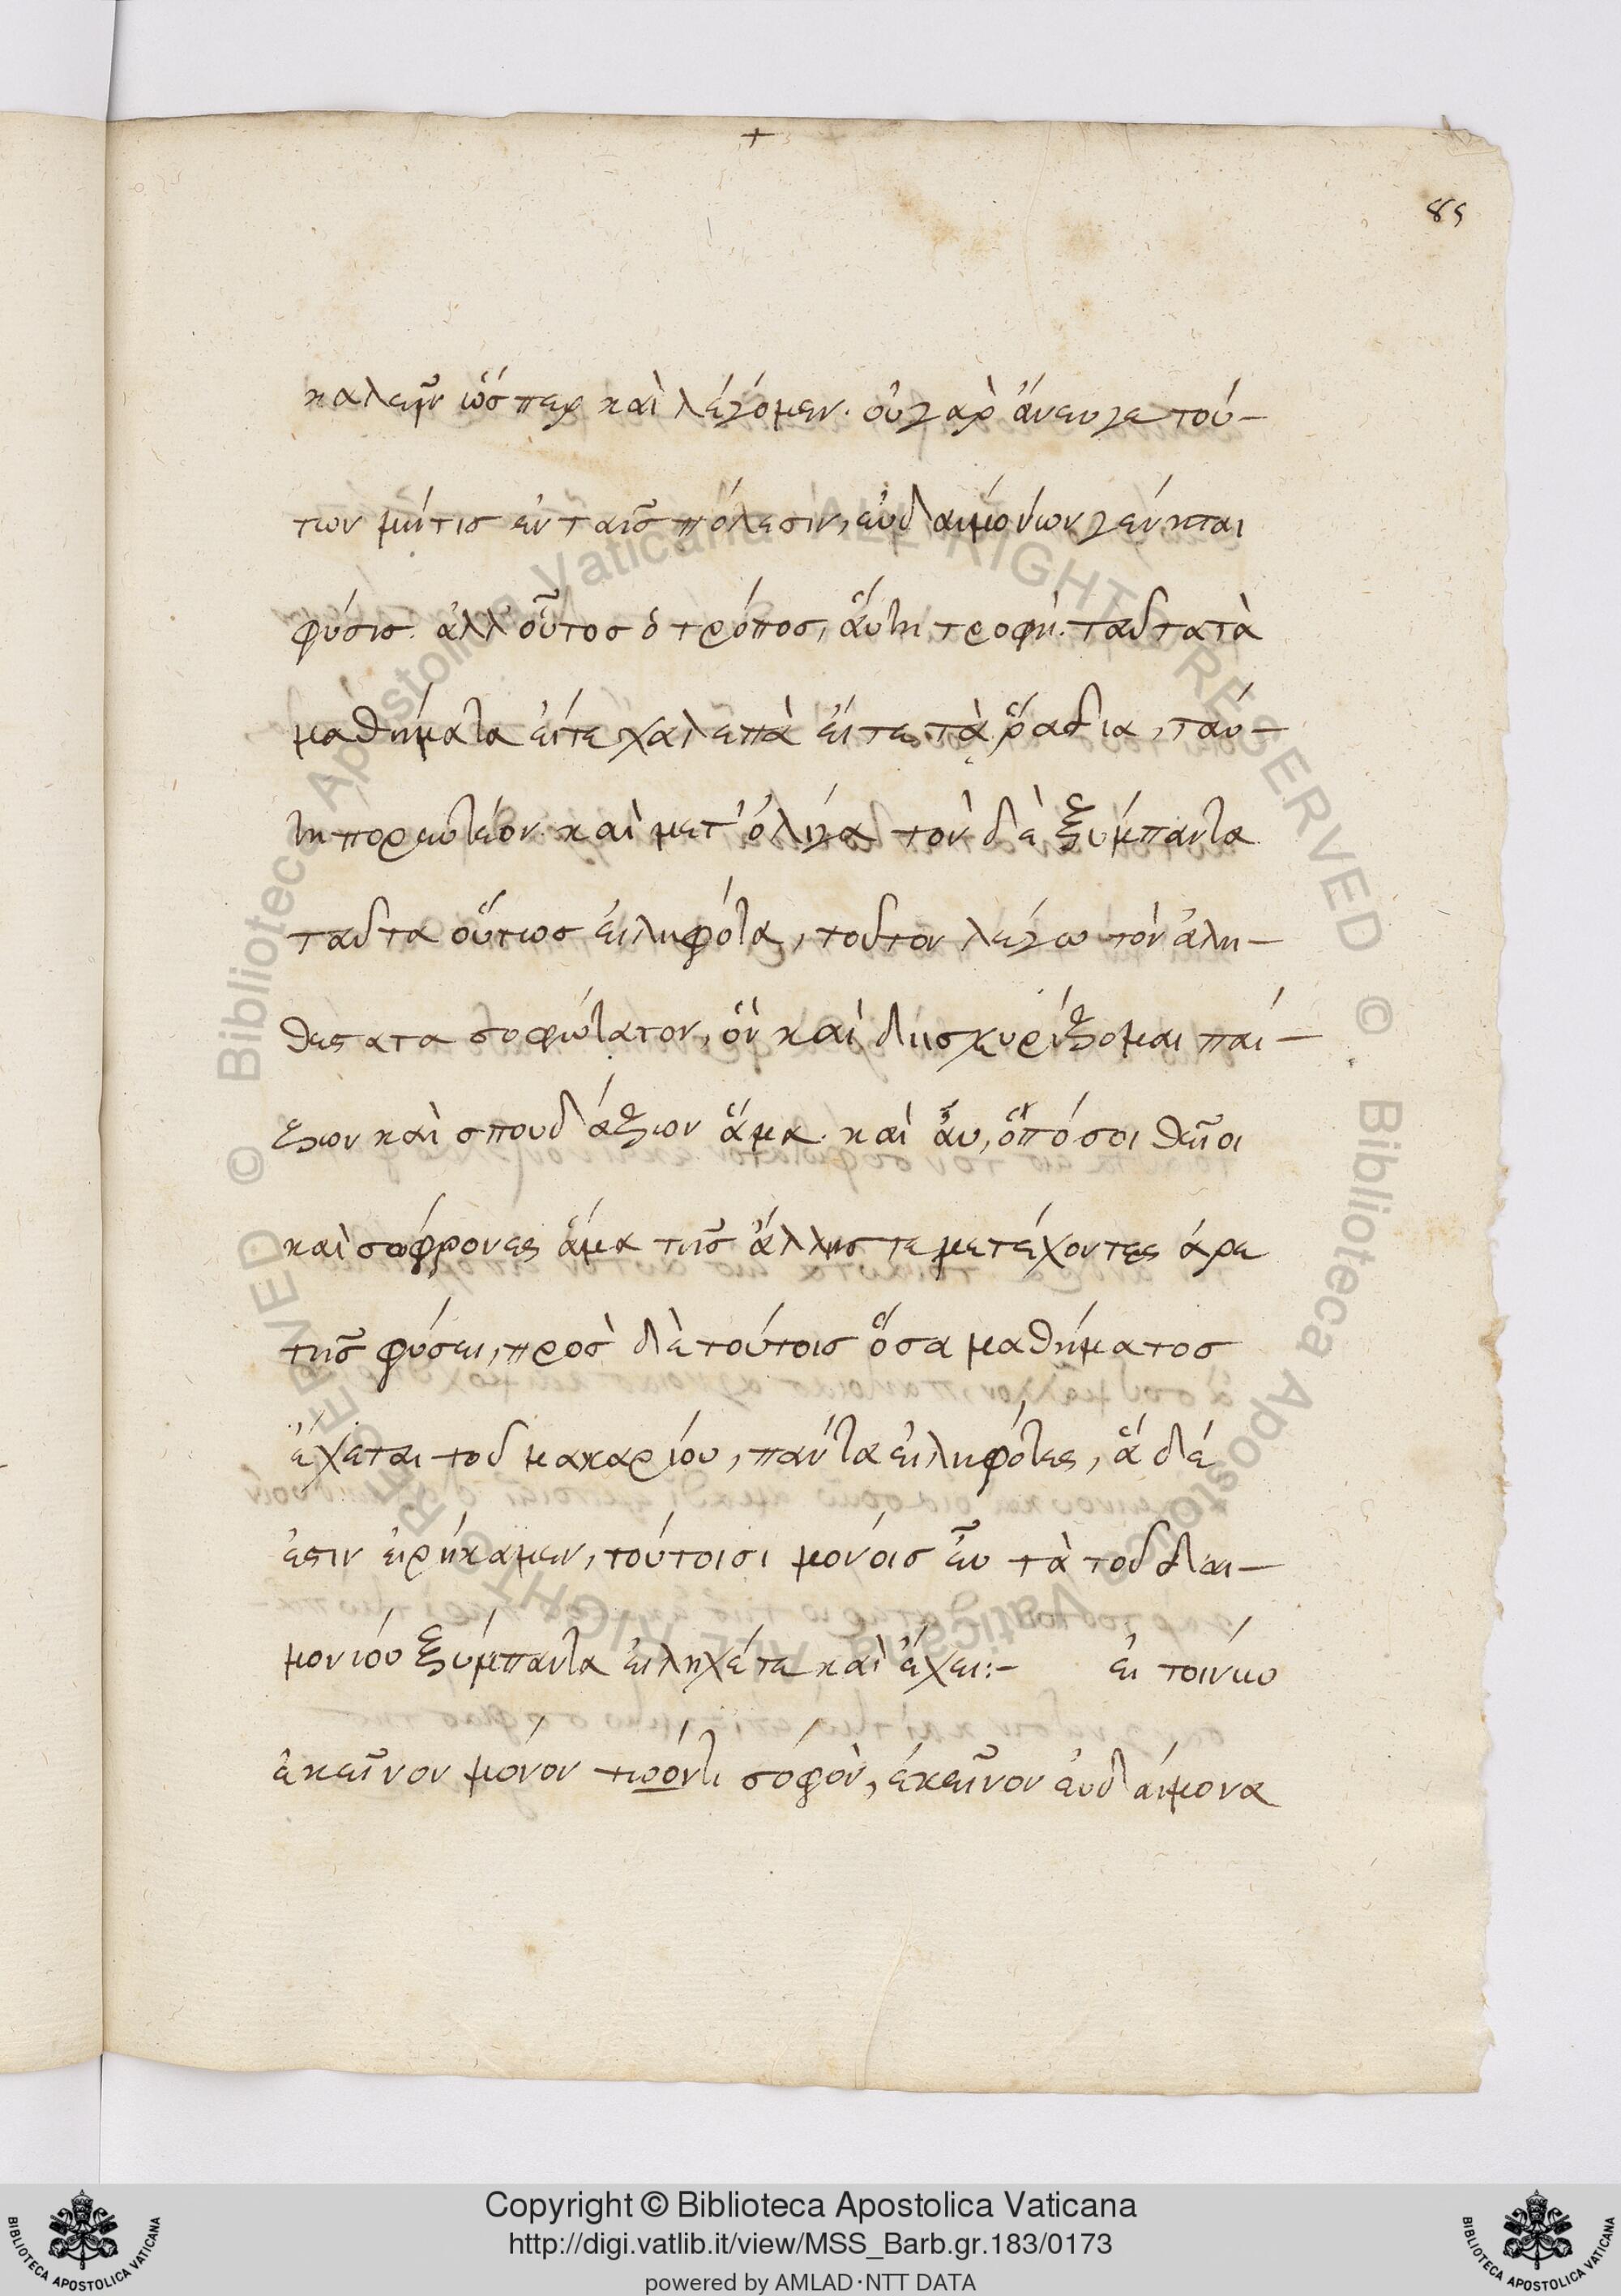 +
85
καλεῖν ὥσπερ καὶ λέγομεν. οὐ γὰρ ἄνευγε τού-
των μήτις ἐν ταῖς πόλεσιν, εὐδαιμόνων γένηται
φύσις. ἀλλ' οὗτος ὁ τρόπος, αὕτη τροφή. ταῦτα τὰ
μαθήματα εἴτε χαλεπὰ εἴτε τὰ ῥάδια, ταύ-
τη πορευτέον. καὶ μετ' ὀλίγα τὸν δὲ ξύμπαντα
ταῦτα οὕτως εἰληφότα, τοῦτον λέγω τὸν ἀλη-
θέστατα σοφώτατον, ὃν καὶ διισχυρίζομαι παί-
ζων καὶ σπουδάζων ἅμα. καὶ αὖ, ὁπόσοι θεῖοι
καὶ σώφρονες ἅμα τῆς ἄλλης τε μετέχοντες ἀρε
τῆς φύσει, πρὸς δὲ τούτοις ὅσα μαθήματος
ἔχεται τοῦ μακαρίου, πάντα εἰληφότες, ἃ δέ
ἐστιν εἰρήκαμεν, τούτοισι μόνοις εὖ τὰ τοῦ δαι-
μονίου ξύμπαντα εἴληχέ τε καὶ ἔχει:- εἰ τοίνυν
ἐκεῖνον μόνον τωόντι σοφὸν, ἐκεῖνον εὐδαίμονα
Copyright © Biblioteca Apostolica Vaticana
http://digi.vatlib.it/view/MSS_Barb.gr.183/0173
powered by AMLAD·NTT DATA
BIBLIOTECA APOSTOLICA VATICANA
BIBLIOTECA APOSTOLICA VATICANA
© Biblioteca Apostolica Vaticana ALL RIGHTS RESERVED © Biblioteca Apostolica Vaticana ALL RIGHTS RESERVED